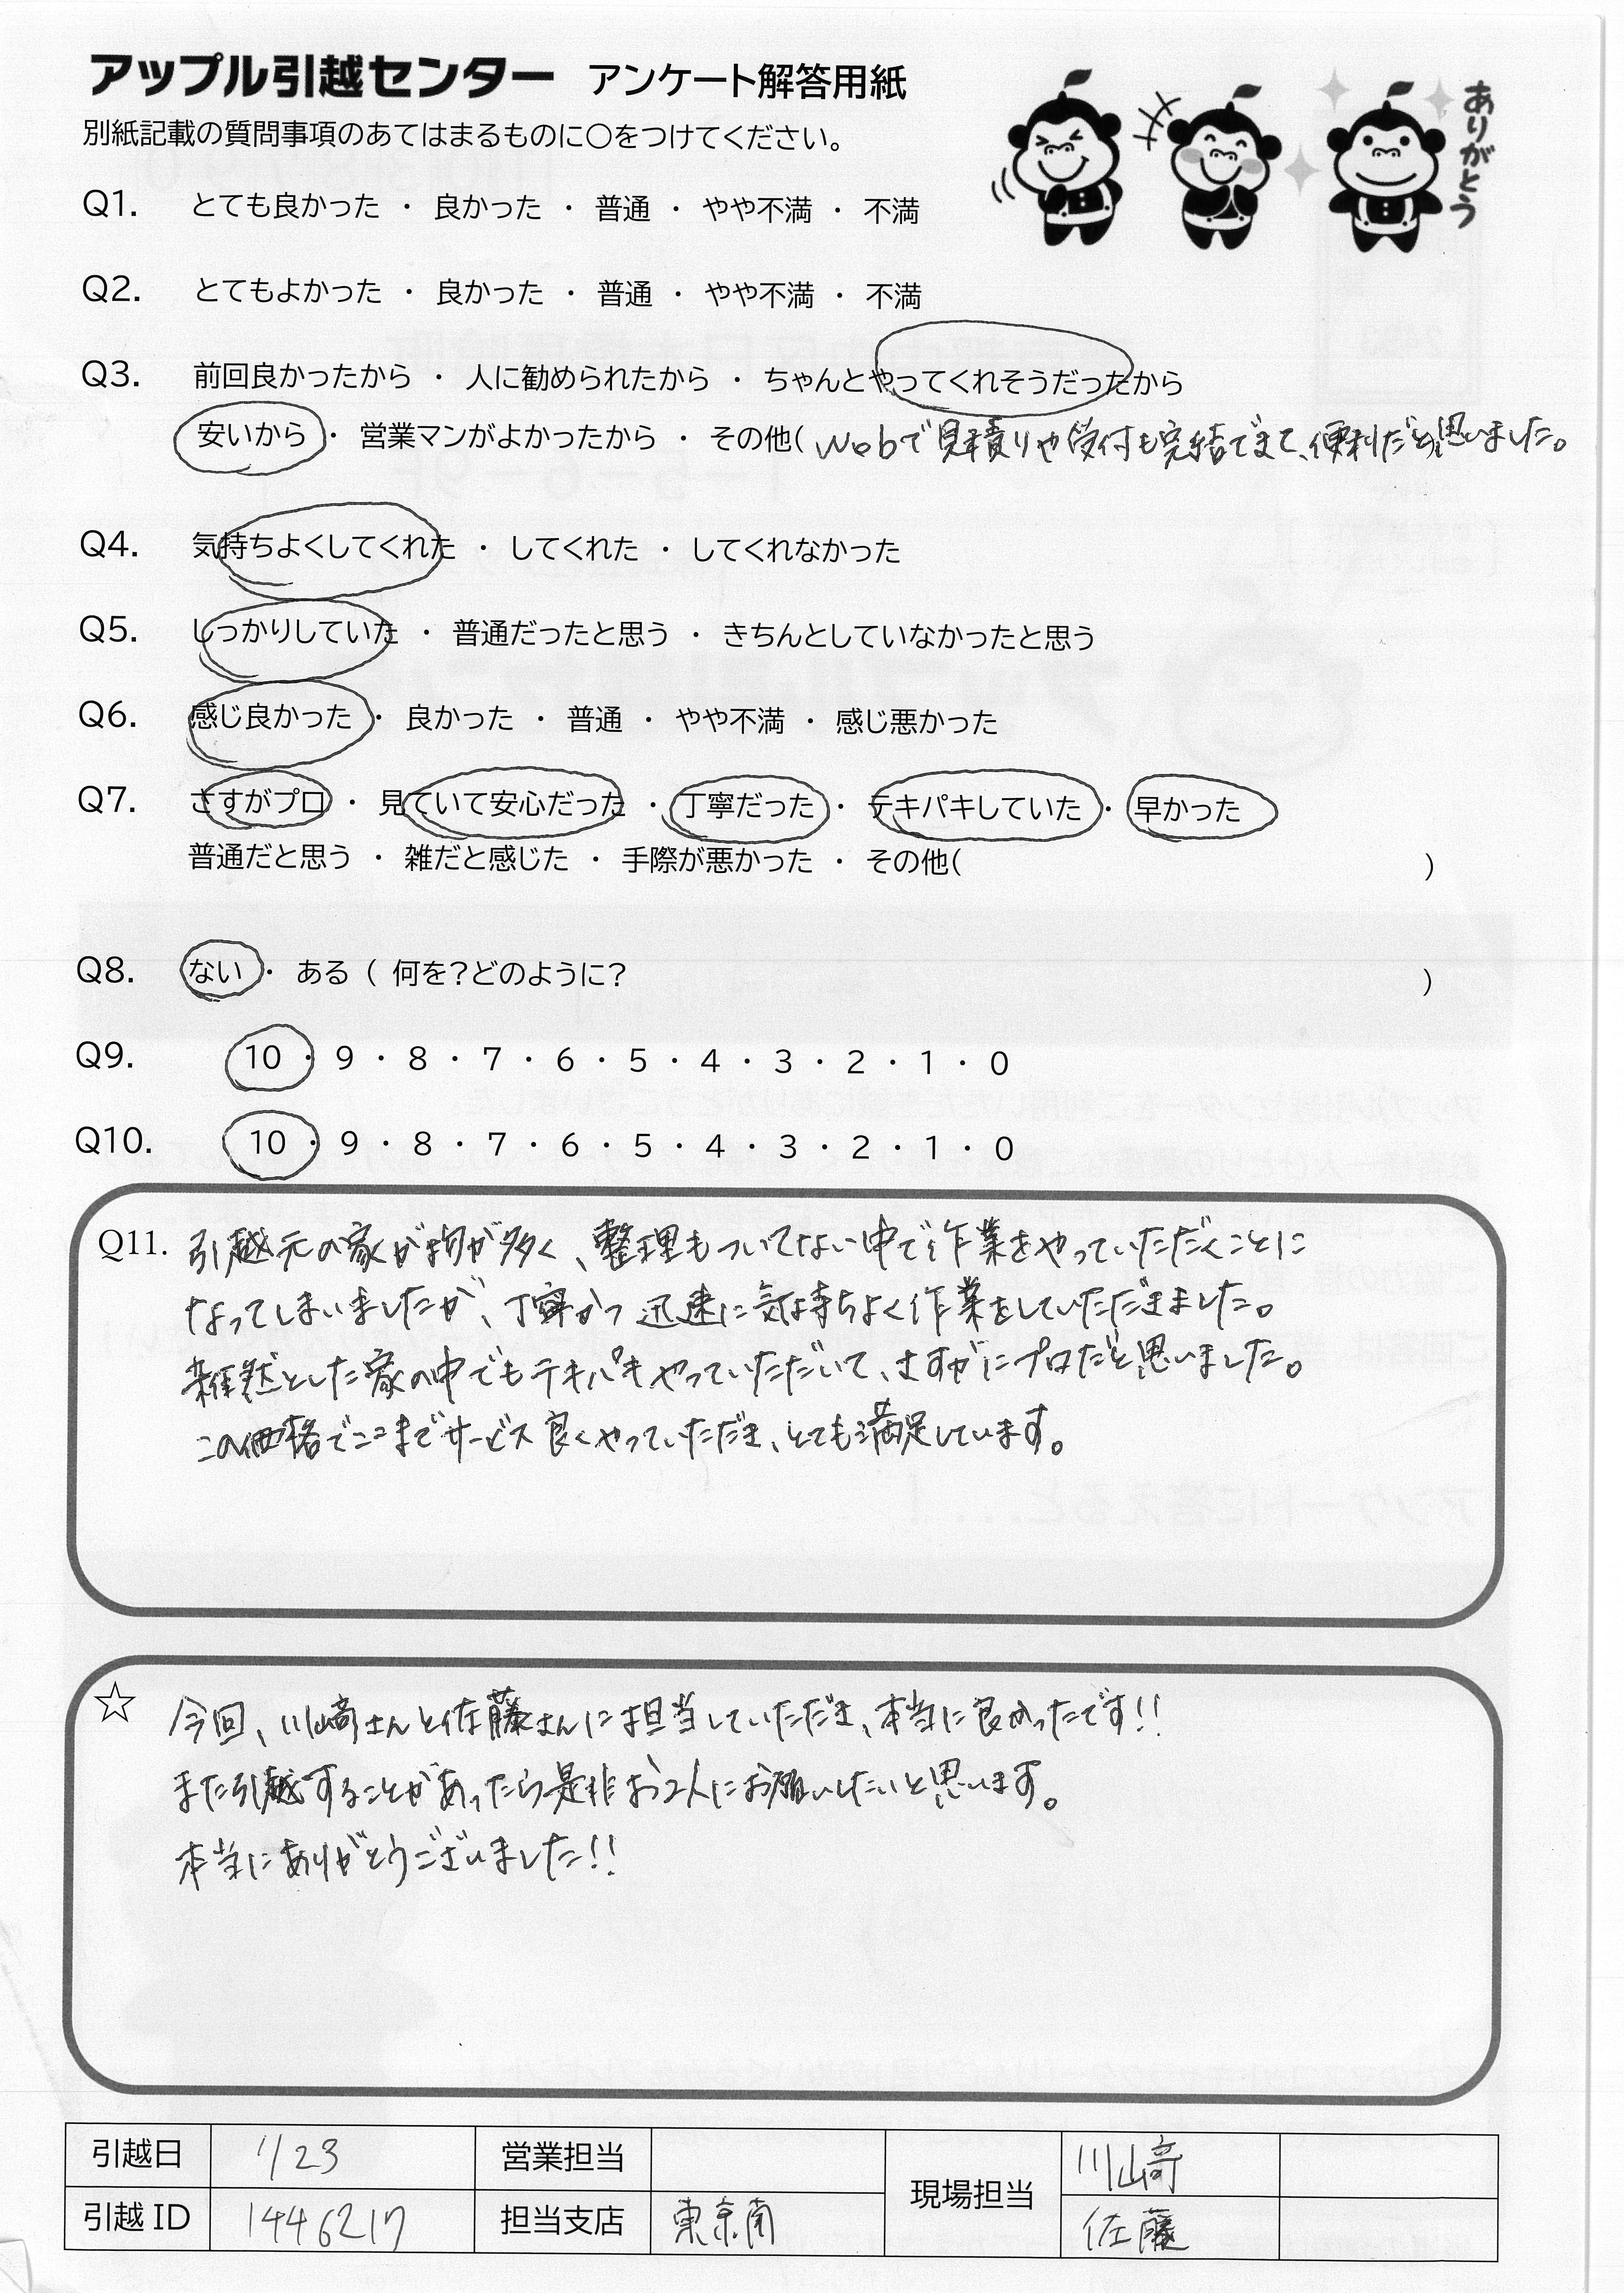 アップル引越センター アンケート解答用紙
ありがとう
別紙記載の質問事項のあてはまるものに○をつけてください。
Q1. とても良かった ・ 良かった ・ 普通 ・ やや不満 ・ 不満
Q2. とてもよかった ・ 良かった ・ 普通 ・ やや不満 ・ 不満
Q3. 前回良かったから ・ 人に勧められたから ・ ちゃんとやってくれそうだったから
安いから ・ 営業マンがよかったから ・ その他( Webで見積りや受付も完結できて、便利だと思いました。
Q4. 気持ちよくしてくれた ・ してくれた ・ してくれなかった
Q5. しっかりしていた ・ 普通だったと思う ・ きちんとしていなかったと思う
Q6. 感じ良かった ・ 良かった ・ 普通 ・ やや不満 ・ 感じ悪かった
Q7. さすがプロ ・ 見ていて安心だった ・ 丁寧だった ・ テキパキしていた ・ 早かった
普通だと思う ・ 雑だと感じた ・ 手際が悪かった ・ その他( )
Q8. ない ・ ある ( 何を?どのように? )
Q9. 10 ・ 9 ・ 8 ・ 7 ・ 6 ・ 5 ・ 4 ・ 3 ・ 2 ・ 1 ・ 0
Q10. 10 ・ 9 ・ 8 ・ 7 ・ 6 ・ 5 ・ 4 ・ 3 ・ 2 ・ 1 ・ 0
Q11. 引越元の家が物が多く、整理もついてない中で作業をやっていただくことに
なってしまいましたが、丁寧かつ迅速に気持ちよく作業をしていただきました。
雑然とした家の中でもテキパキやっていただいて、さすがにプロだと思いました。
この価格でここまでサービス良くやっていただき、とても満足しています。
☆ 今回、川崎さんと佐藤さんに担当していただき、本当に良かったです!!
また引越することがあったら是非お2人にお願いしたいと思います。
本当にありがとうございました!!
引越日 1/23 営業担当 現場担当 川崎
引越ID 1446217 担当支店 東京南 佐藤